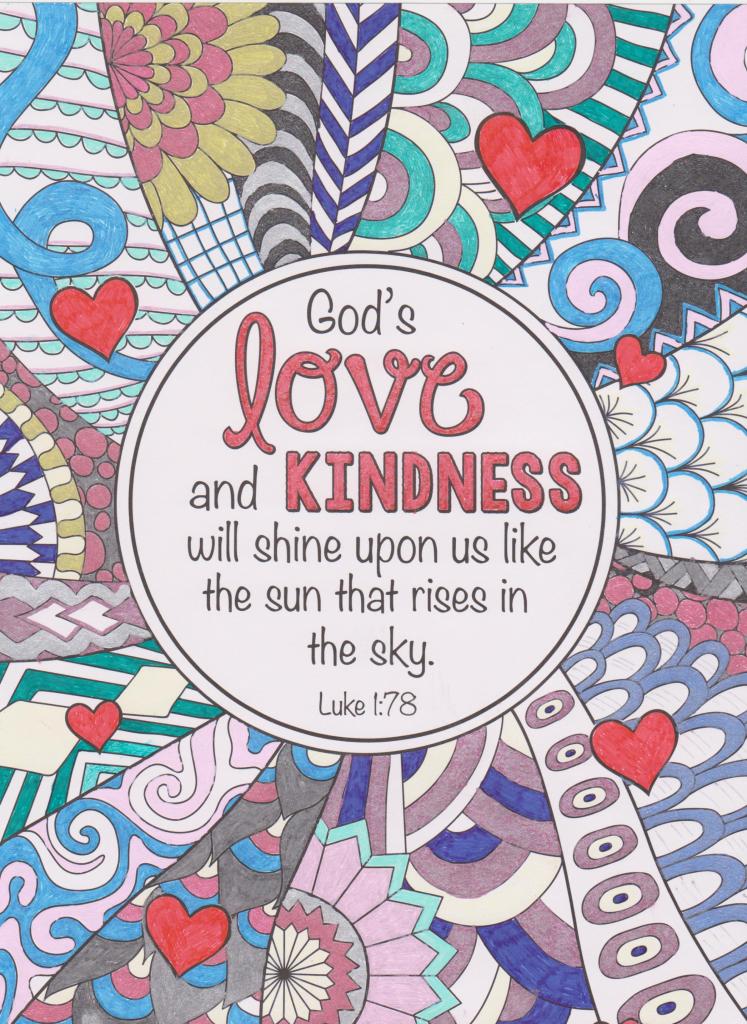 God's
love
and KINDNESS
will shine upon us like
the sun that rises in
the sky.
Luke 1:78